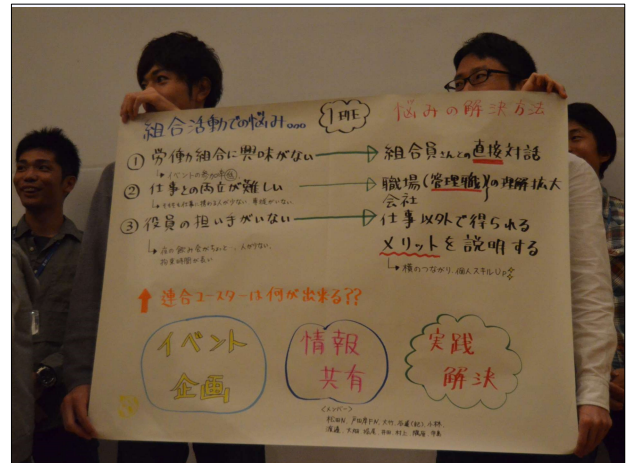 組合活動での悩み。。。
1班
悩みの解決方法
① 労働組合に興味がない
組合員さんとの直接対話
↳ イベントの参加率低
② 仕事との両立が難しい
職場(管理職)の理解拡大
会社
③ 役員の担い手がいない
仕事以外で得られる
メリットを説明する
拘束時間が長い
↳ 横のつながり 個人スキルUP
↑ 連合ユースターは何が出来る??
イベント
企画
情報
共有
実践
解決
<メンバー>